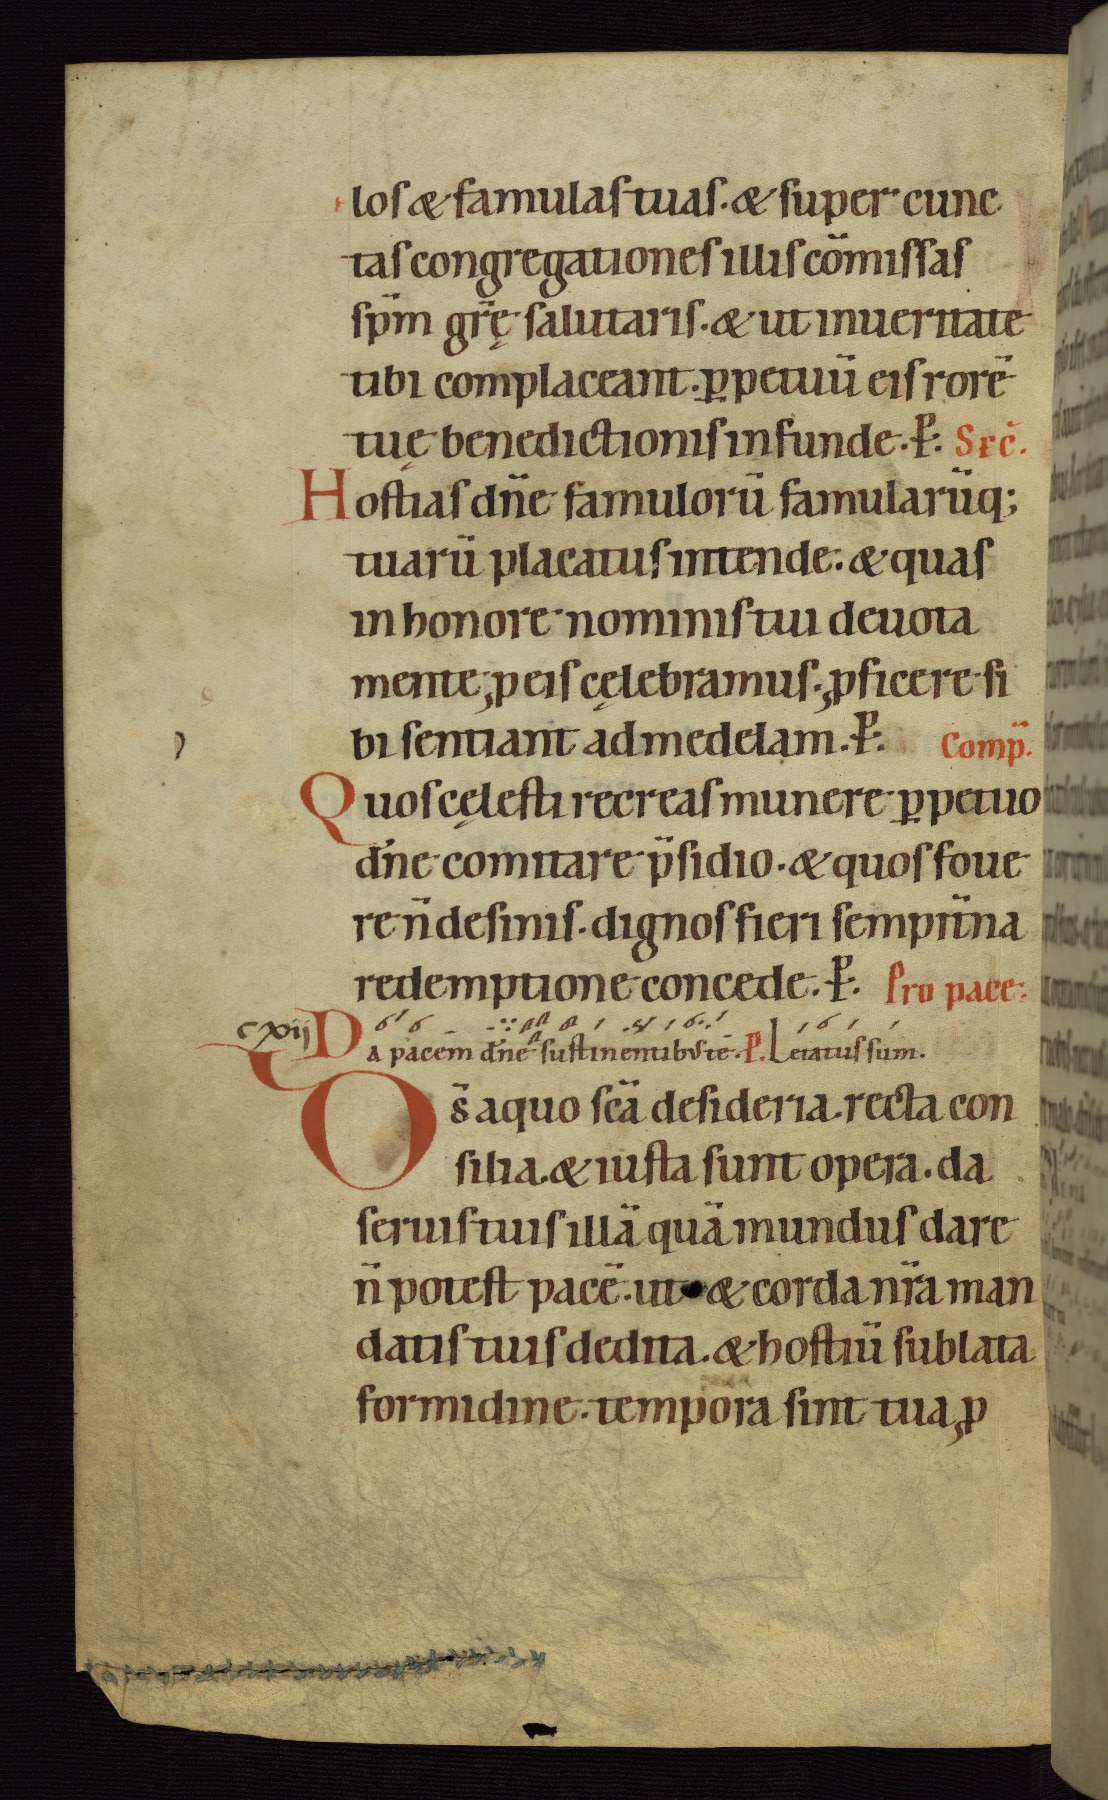 los & famulas tuas. & super cunc
tas congregationes illis cōmissas
sp̄m gr̄ę salutaris. & ut in ueritate
tibi complaceant. ꝑpetuū eis rorē
tuę benedictionis infunde. P̵. Sec̄.
Hostias dn̄e famulorū famularūq;
tuarū placatus intende. & quas
in honore nominis tui deuota
mente ꝓ eis cęlebramus. ꝓficere si
bi sentiant ad medelam. P̵. Comp̄.
Quos cęlesti recreas munere ꝑpetuo
dn̄e comitare p̄sidio. & quos foue
re n̄ desinis. dignos fieri sempit̄na
redemptione concede. P̵. Pro pace.
cxiij Da pacem dn̄e sustinentibus te. P. Letatus sum.
Os̄ a quo sc̄a desideria. recta con
silia. & iusta sunt opera. da
seruis tuis illā quā mundus dare
n̄ potest pacē. ut & corda nr̄a man
datis tuis dedita. & hostiū sublata
formidine. tempora sint tua ꝓ